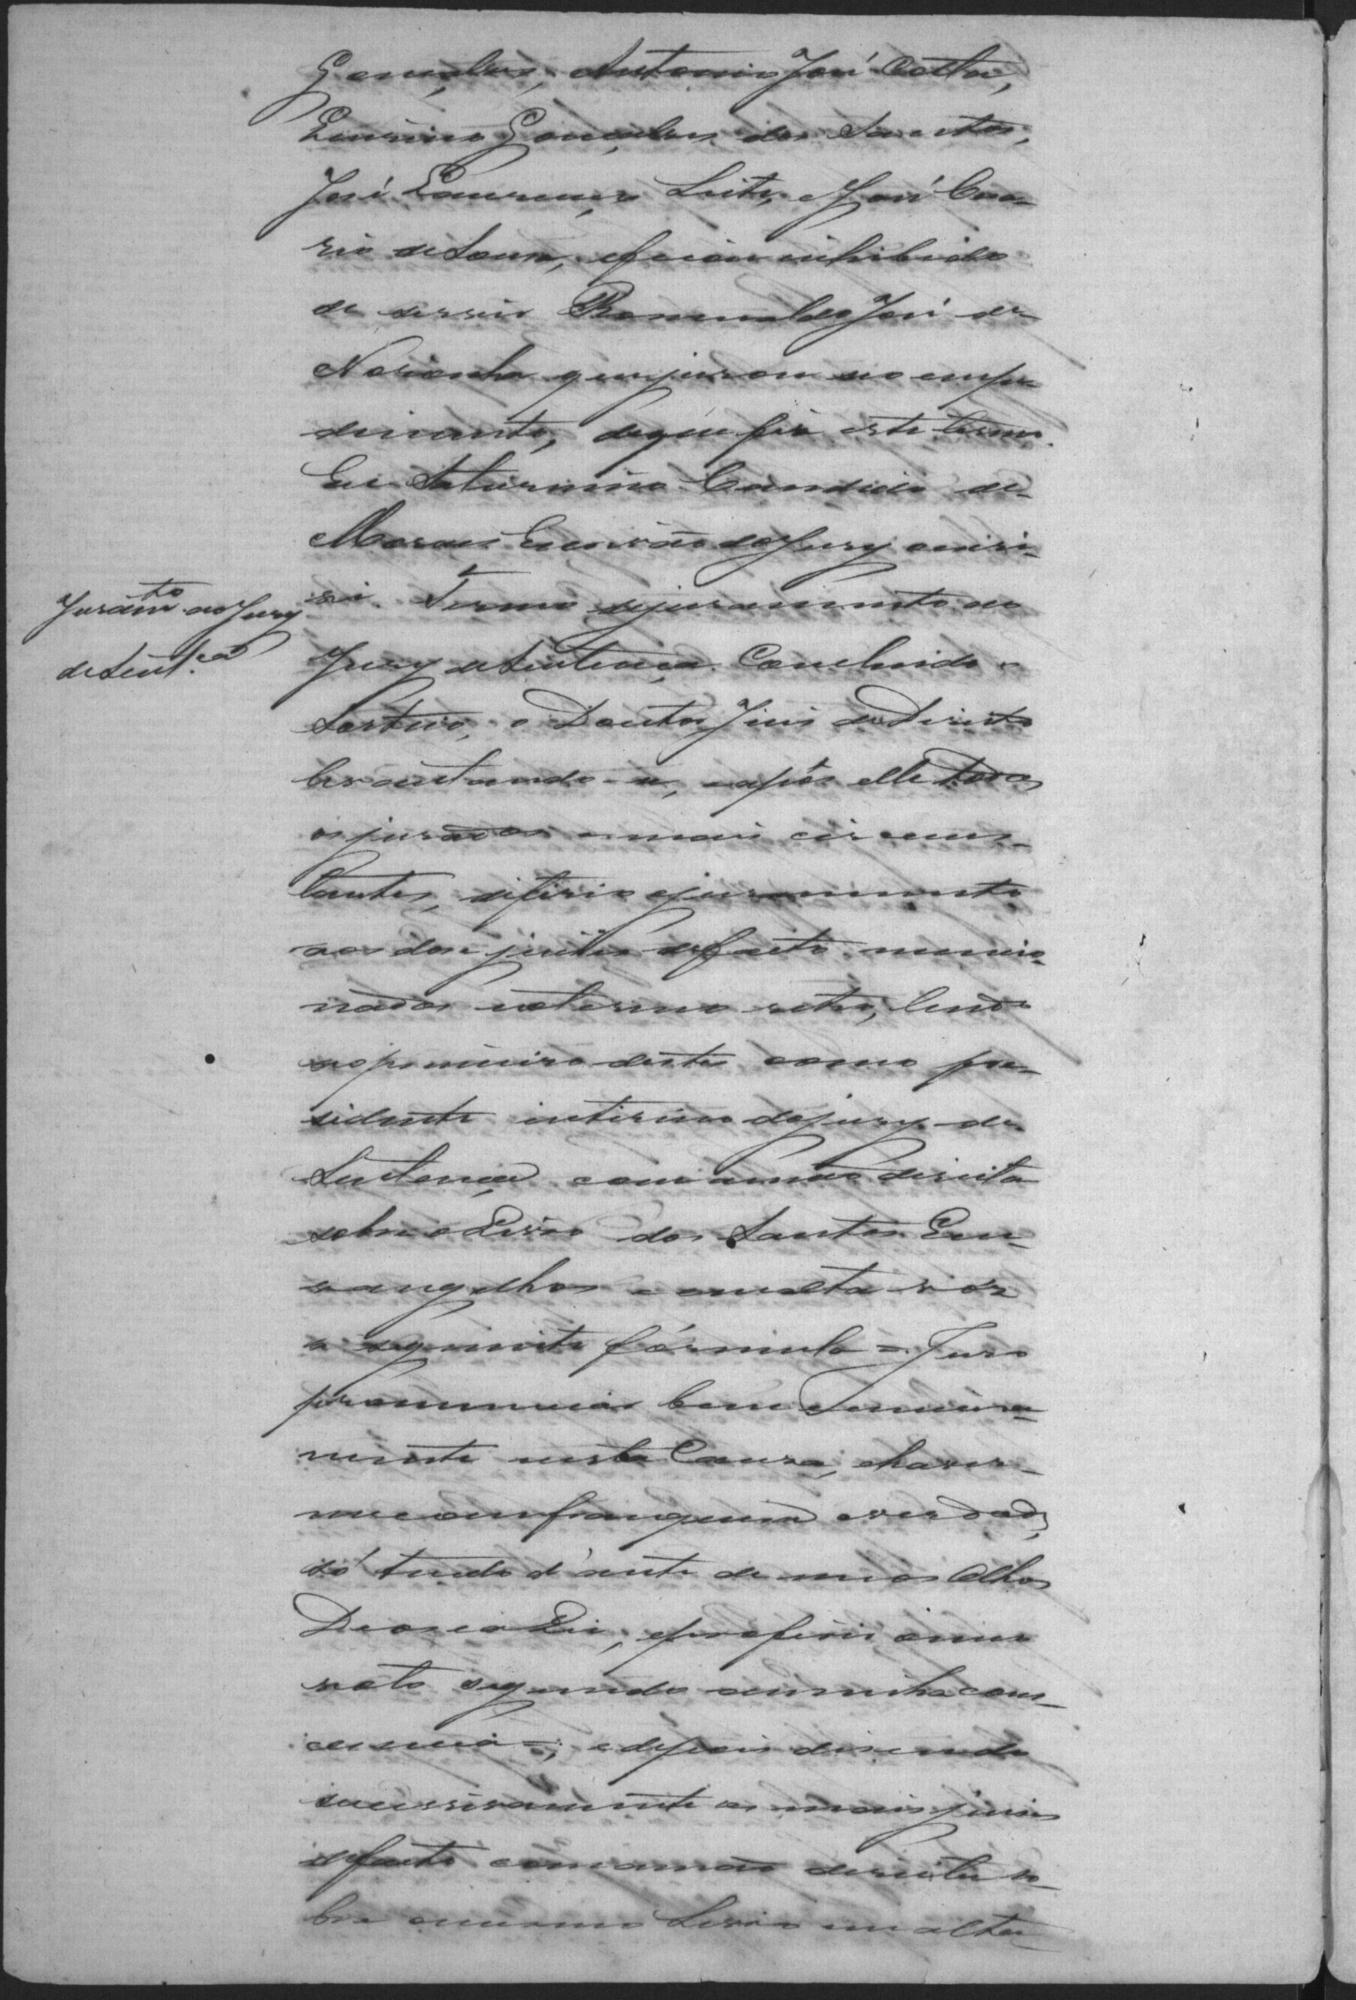 Gonçalves, Antonio José Cotta,
Lourenço Gonçalves dos Santos,
José Lourenço Leite, e José Cae-
rio de Souza, e ficou inhibido
de servir Romualdo José de
Noronha que jurou no empe-
dimento, do que fiz este termo.
Eu Saturnino Candido de
Moraes Escrivão do Jury escri-
vi. Termo de juramento ao
Juramto ao Jury
de Sentca
Jury de Sentença. Concluido o
Sorteio, o Doutor Juis de Direito
levantando-se, e após elle todos
os jurados e mais circuns-
tantes, deferio o juramento
aos dose juises de facto mencio-
nados no termo retro, lendo
o primeiro destes como pre-
sidente interino do jury de
Sentença com a mão direita
sobre o Livro dos Santos Evan-
vangelhos e em alta vós
a seguinte fórmula = Juro
pronunciar bem e sincera-
mente nesta Causa, haver-
me com franquesa e verdade,
só tendo d'ante de meus Olhos
Deos e a Lei, e proferir o meu
voto segundo a minha cons-
ciencia =; e depois disendo
successivamente os mais juises
de facto com a mão direita so-
bre o mesmo Livro em alta